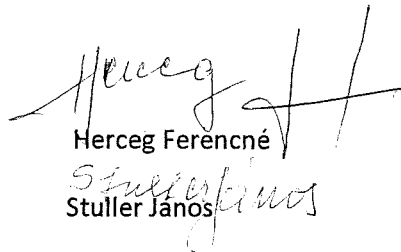 Herceg
Herceg Ferencné
Stuller János
Stuller János